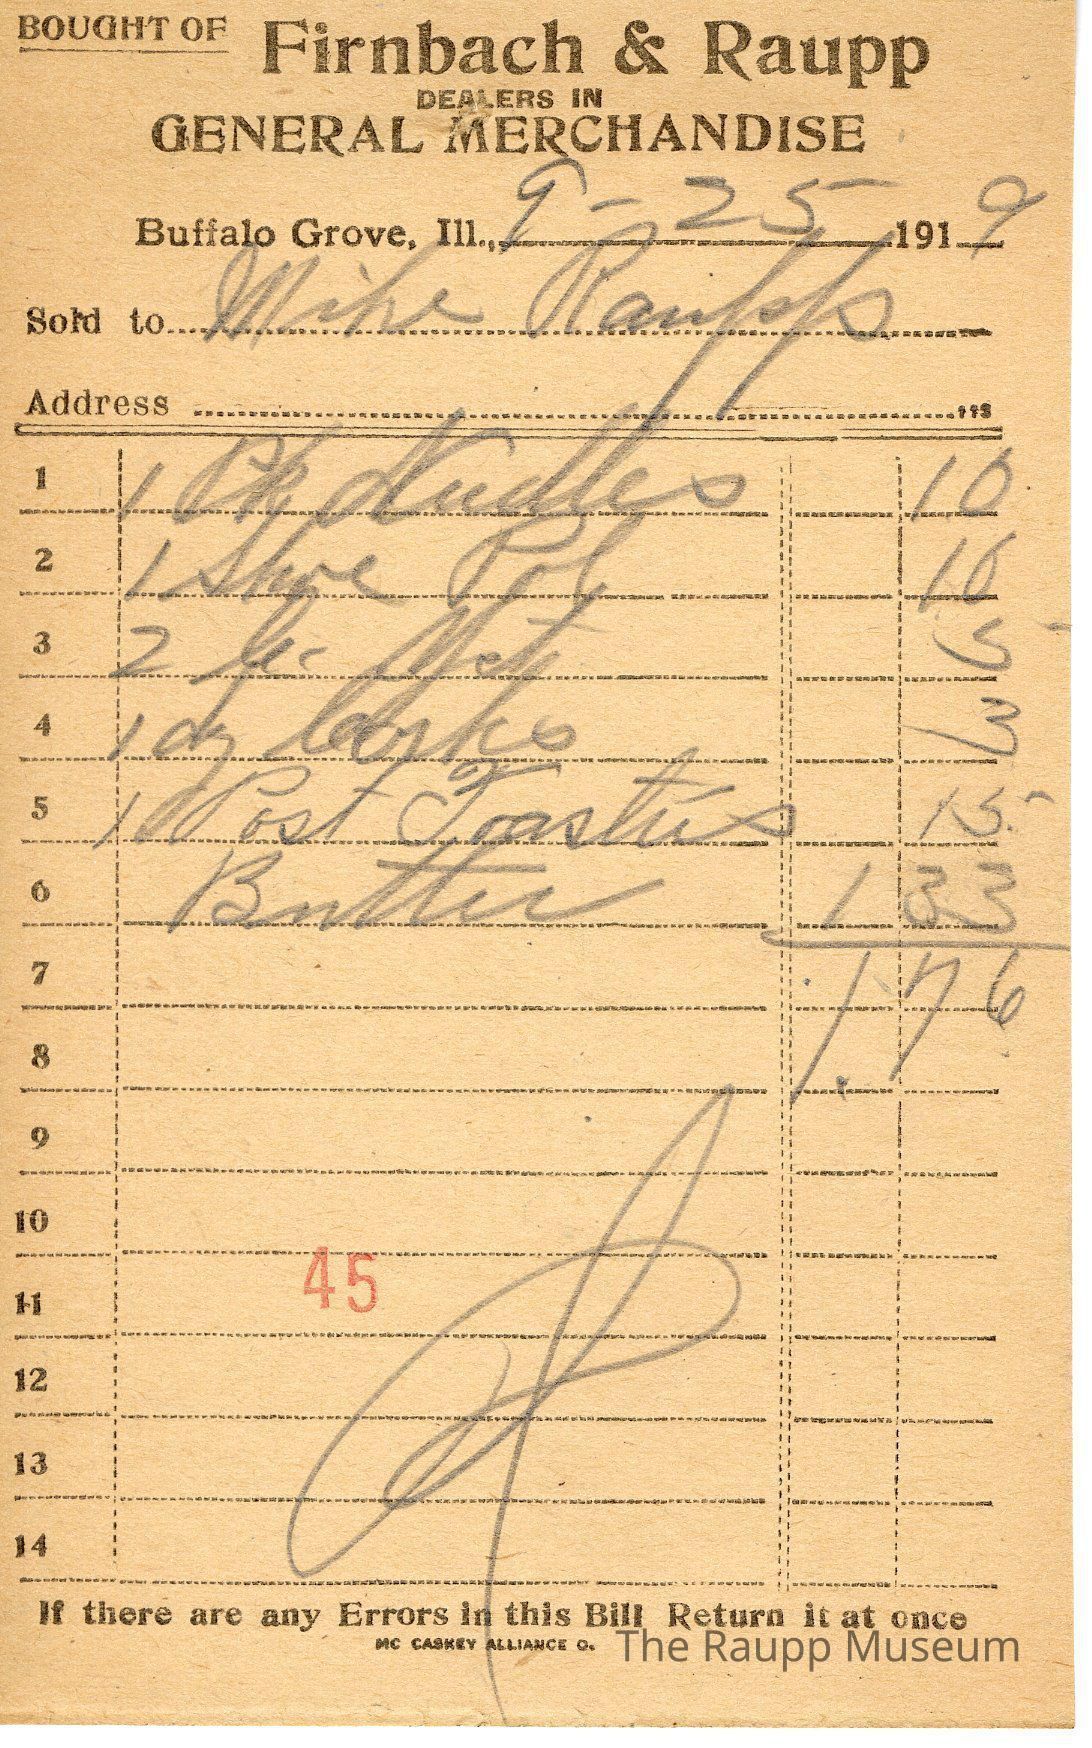 BOUGHT OF Firnbach & Raupp
DEALERS IN
GENERAL MERCHANDISE
Buffalo Grove, Ill., 9-25 1919
Sold to Mike Raupp
Address
1 1 Pk Nudles 10
2 1 Shoe Pol 10
3 2 5
4 1 dz Corks 3
5 1 Post Toasties 15
6 Butter 1 33
7 1.76
8
9
10
45
11
12
13
14
If there are any Errors in this Bill Return it at once
MC CASKEY ALLIANCE O.
The Raupp Museum